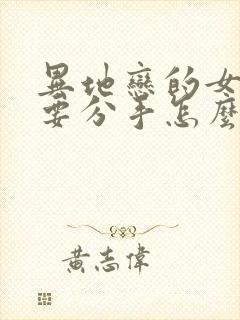 異地戀的女
要分手怎麼
黃志偉